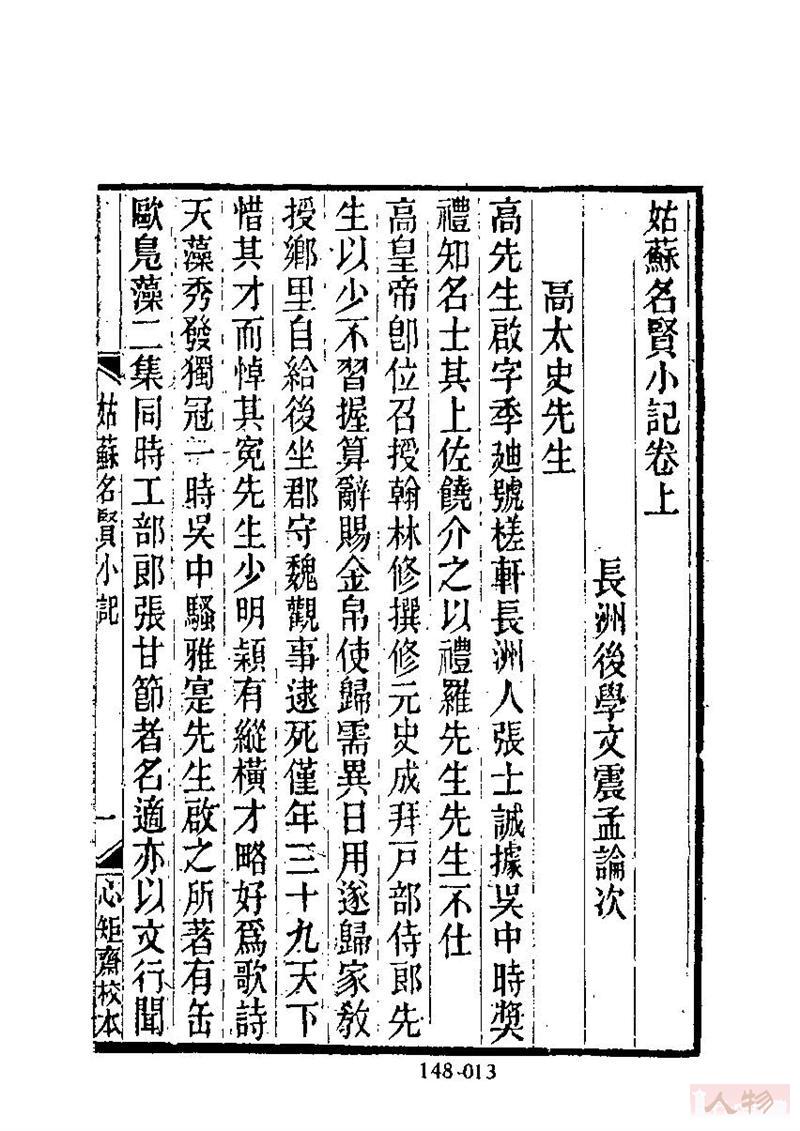 姑蘇名賢小記卷上
長洲後學文震孟論次
高太史先生
高先生啟字季廸號槎軒長洲人張士誠據吳中時獎
禮知名士其上佐饒介之以禮羅先生先生不仕
高皇帝卽位召授翰林修撰修元史成拜戶部侍郎先
生以少不習握算辭賜金帛使歸需異日用遂歸家教
授鄉里自給後坐郡守魏觀事逮死僅年三十九天下
惜其才而悼其冤先生少明穎有縱橫才略好爲歌詩
天藻秀發獨冠一時吳中騷雅寔先生啟之所著有缶
歐鳧藻二集同時工部郎張甘節者名適亦以文行聞
姑蘇名賢小記
一
心矩齋校本
148-013
人物